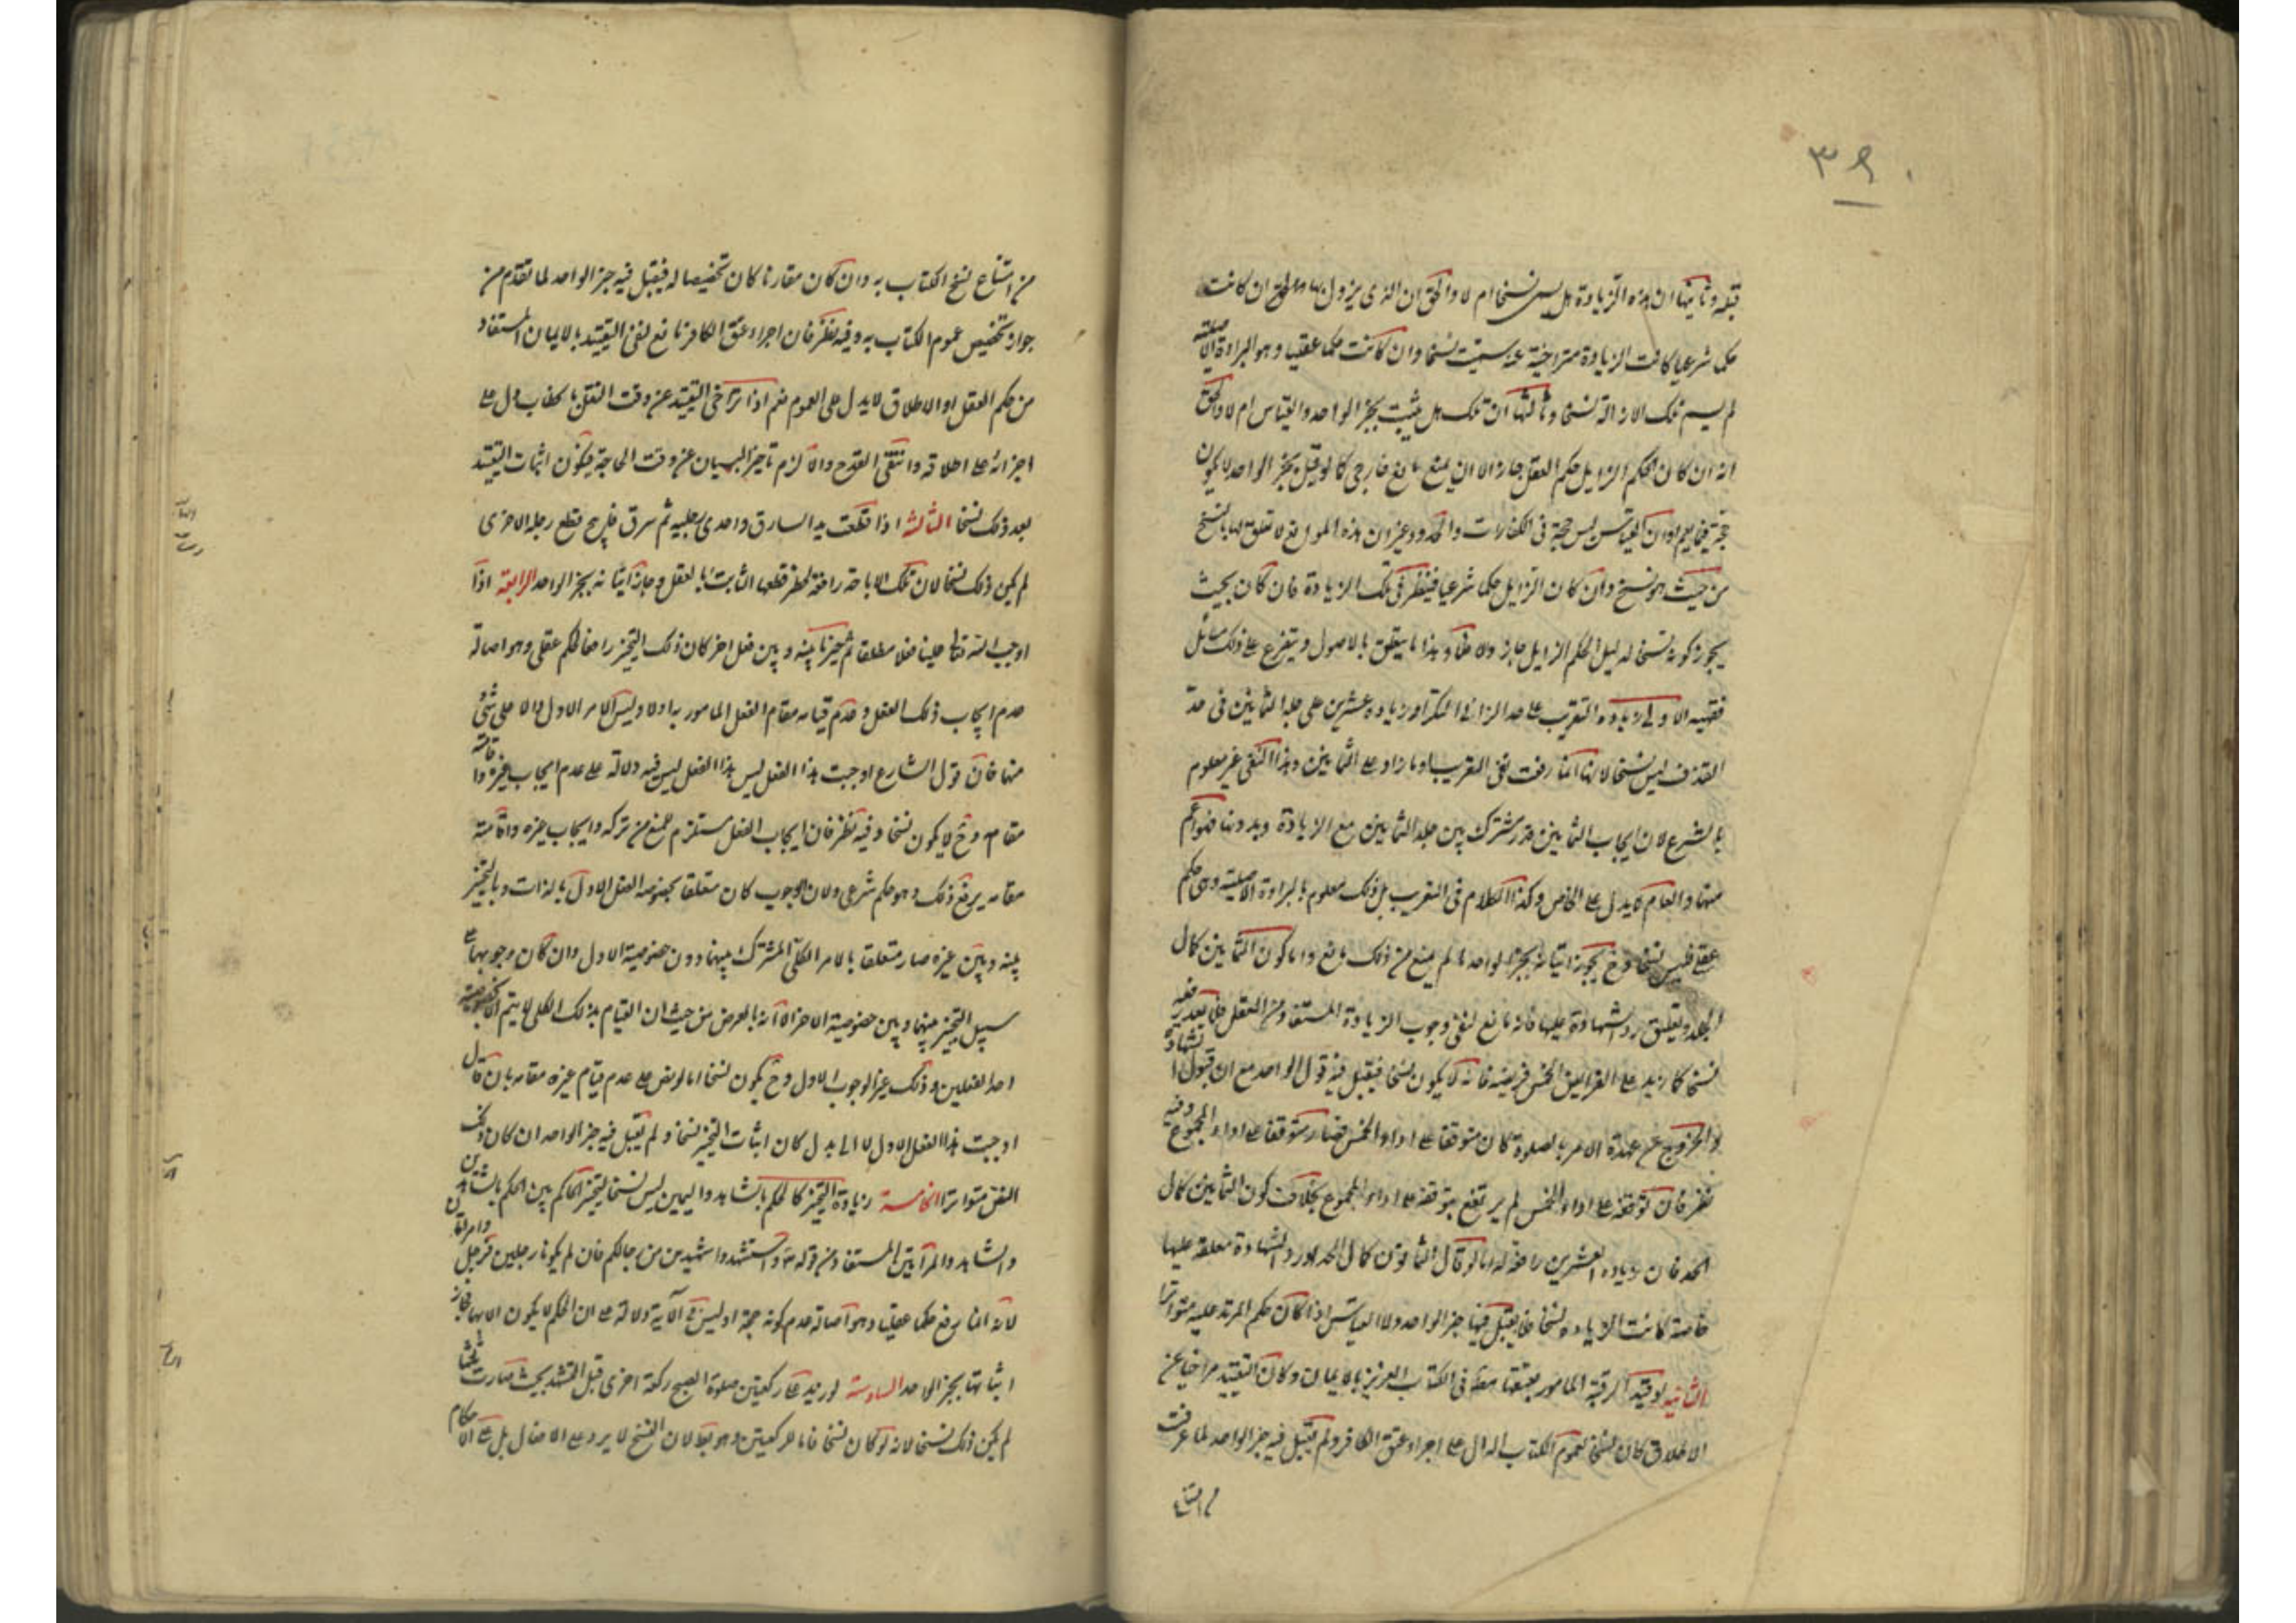 ٣٩٠
قبله وثانيها ان هذه الزيادة هل يسمى نسخا ام لا والحق ان الذى يزول بها ان كانت
حكما شرعيا كانت الزيادة متراخية عنه سميت نسخا وان كانت حكما عقليا وهو البراءة الاصلية
لم يسم تلك الازالة نسخا وثالثها ان تلك هل يثبت بخبر الواحد والقياس ام لا والحق
انه ان كان الحكم الزايل حكم العقل جاز الا ان يمنع مانع خارجى كما لو قيل خبر الواحد لا يكون
حجة فيما يعم او ان القياس ليس حجة فى الكفارات والحدود غير ان هذه الموانع لا تعلق لها بالنسخ
من حيث هو نسخ وان كان الزايل حكما شرعيا فينظر فى تلك الزيادة فان كان بحيث
يجوز كونه نسخا لدليل الحكم الزايل جاز والا فلا وهذا ما يتعلق بالاصول ويتفرع على ذلك مسائل
فقهية الاولى زيادة التغريب على حد الزانى البكر او زيادة عشرين على جلد الثمانين فى حد
القذف ليس نسخا لانها انما رفعت نفى التغريب او ما زاد على الثمانين وهذا النفى غير معلوم
بالشرع لان ايجاب الثمانين قدر مشترك بين جلد الثمانين مع الزيادة وبدونها فهو اعم
منهما والعام لا يدل على الخاص وكذا الكلام فى التغريب بل ذلك معلوم بالبراءة الاصلية وهى حكم
عقلى فليس نسخا وح يجوز اثباته بخبر الواحد ما لم يمنع من ذلك مانع واما كون الثمانين كمال
الحد وتعليق رد الشهادة عليها فانه تابع لنفى وجوب الزيادة المستفاد من العقل فلم يعد رفعه
نسخا كما زيد على الفرايض الخمس فريضة فانه لا يكون نسخا فيقبل فيه قول الواحد مع ان قبول الشهادة
والخروج عن عهدة الامر بالصلوة كان متوقفا على اداء الخمس فصار متوقفا على اداء المجموع وفيه
نظر فان توقفه على اداء الخمس لم يرتفع بتوقفه على اداء المجموع بخلاف كون الثمانين كمال
الحد فان زيادة العشرين رافعة له اما لو قال الثمانون كمال الحد ورد الشهادة معلقة عليها
خاصة كانت الزيادة نسخا فلا يقبل فيها خبر الواحد ولا القياس اذا كان حكم المزيد عليه متواترا
الثانية لو قيد الرقبة المأمور بعتقها مطلقة فى الكتاب العزيز بالايمان وكان التقييد متراخيا عن
الاطلاق كان نسخا لعموم الكتاب الدال على اجزاء عتق الكافر ولم يقبل فيه خبر الواحد لما عرفت
من امتناع
من امتناع نسخ الكتاب به وان كان مقارنا كان تخصيصا له فيقبل فيه خبر الواحد لما تقدم من
جواز تخصيص عموم الكتاب به وفيه نظر فان اجزاء عتق الكافر تابع لنفى التقييد بالايمان المستفاد
من حكم العقل او الاطلاق لا يدل على العموم نعم اذا تراخى التقييد عن وقت النطق بالخطاب دل على
اجزائه على اطلاقه وانتفى القدح والا لزم تاخير البيان عن وقت الحاجة فيكون اثبات التقييد
بعد ذلك نسخا الثالثة اذا قطعت يد السارق واحدى رجليه ثم سرق فابيح قطع رجله الاخرى
لم يكن ذلك نسخا لان تلك الاباحة رافعة لحظر قطعها الثابت بالعقل وجاز اثباته بخبر الواحد الرابعة اذا
اوجب الله تعالى علينا فعلا مطلقا ثم خيرنا بينه وبين فعل اخر كان ذلك التخيير رافعا لحكم عقلى وهو اصالة
عدم ايجاب ذلك الفعل وعدم قيامه مقام الفعل المامور به اولا وليس الامر الاول دالا على شئ
منها فان قول الشارع اوجبت هذا الفعل ليس فيه دلالة على عدم ايجاب غيره واقامته
مقامه وح لا يكون نسخا وفيه نظر فان ايجاب الفعل مستلزم للمنع من تركه وايجاب غيره واقامته
مقامه يرفع ذلك وهو حكم شرعى ولان الوجوب كان متعلقا بخصوصه الفعل الاول بالذات وبالتخيير
بينه وبين غيره صار متعلقا بالامر الكلى المشترك بينهما دون خصوصية الاول وان كان وجوبهما على
سبيل التخيير بينها وبين خصوصية الاخر الا انه بالعرض من حيث ان القيام بذلك الكلى لا يتم الا بخصوصية
احد الفعلين وذلك غير الوجوب الاول وح يكون نسخا اما لو نص على عدم قيام غيره مقامه بان قال
اوجبت هذا الفعل الاول لا الى بدل كان اثبات التخيير نسخا ولم يقبل فيه خبر الواحد ان كان ذلك
النص متواترا الخامسة زيادة التخيير كالحكم بالشاهد واليمين ليس نسخا لتخيير الحاكم بين الحكم بالشاهدين
والشاهد والمرأتين المستفاد من قوله تع واستشهدوا شهيدين من رجالكم فان لم يكونا رجلين فرجل وامرأتان
لانه انما يرفع حكما عقليا وهو اصالة عدم كونه حجة اذ ليس فى الاية دلالة على ان الحكم لا يكون الا بهما فجاز
اثباتها بخبر الواحد السادسة لو زيد على ركعتين صلوة الصبح ركعة اخرى قبل التشهد بحيث صارت ثلثا
لم يكن ذلك نسخا لانه لو كان نسخا فاما للركعتين وهو بط لان النسخ لا يرد على الافعال بل على الاحكام